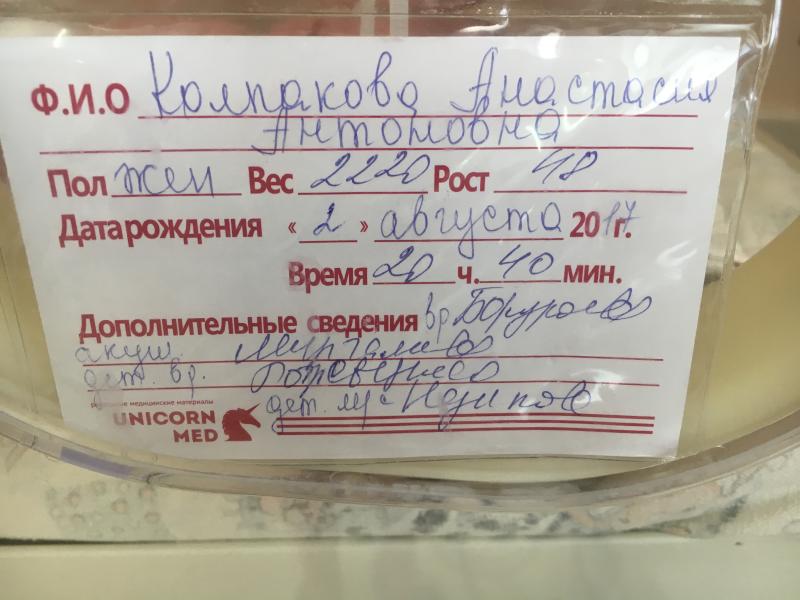 Ф.И.О Колпакова Анастасия
Антоновна
Пол жен Вес 2220 Рост 48
Дата рождения « 2 » августа 2017г.
Время 20 ч. 40 мин.
Дополнительные сведения вр.
акуш.
дет. вр.
медицинские материалы
UNICORN дет. м/с
MED